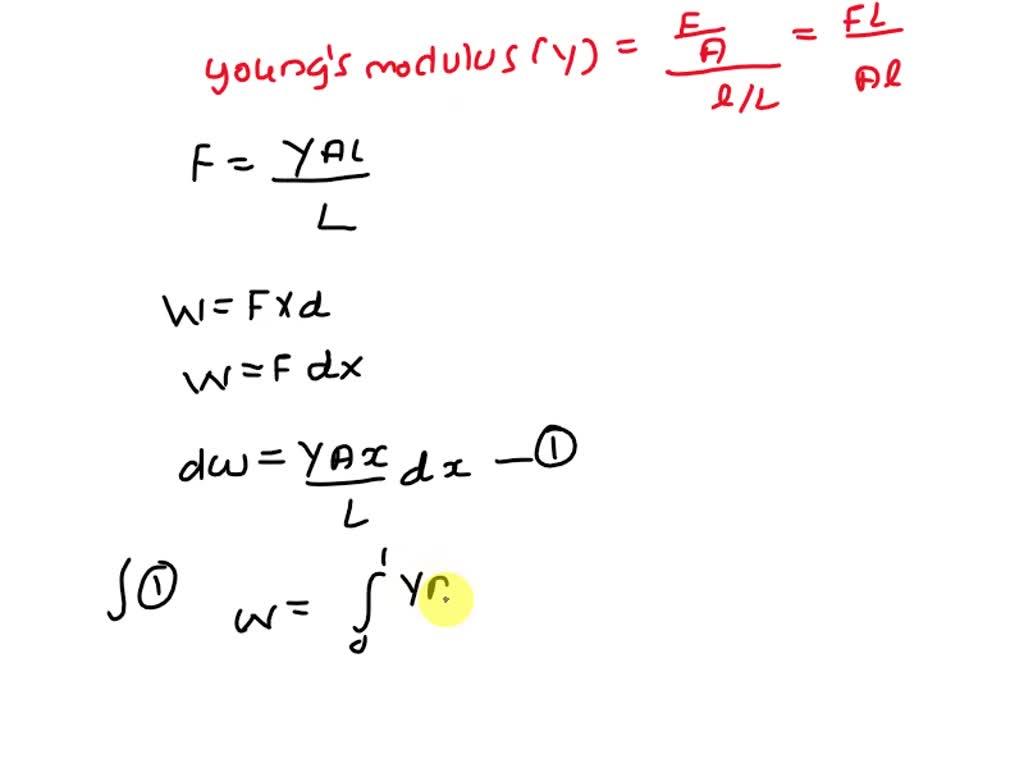 young's modulus (y) = F/A / l/L = FL / Al
F = YAl / L
W = F x d
W = F dx
dw = YAx / L dx — ①
∫① w = ∫₀ˡ Y